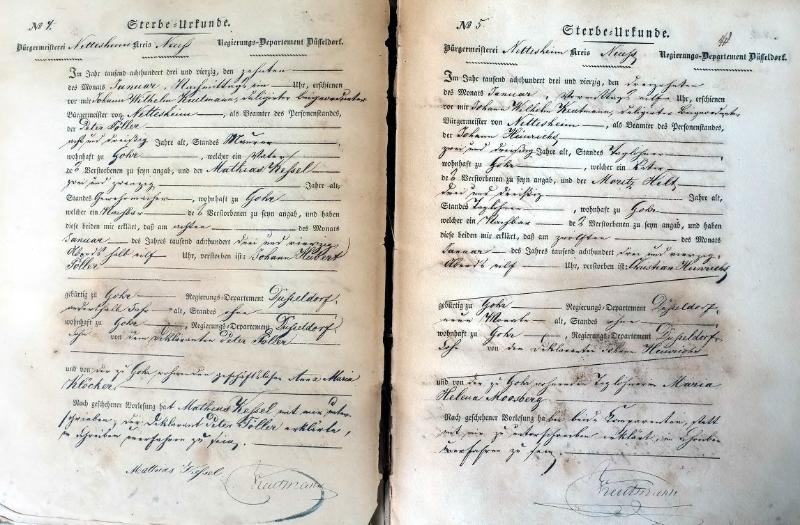 No 4.
Sterbe-Urkunde.
Bürgermeisterei Nettesheim Kreis Neuss Regierungs-Departement Düsseldorf.
Im Jahr tausend achthundert drei und vierzig, den zehnten
des Monats Januar, Nachmittags ein Uhr, erschienen
vor mir Johann Wilhelm
Bürgermeister von Nettesheim, als Beamter des Personenstandes,
der Peter Söller
acht und dreißig Jahre alt, Standes Maurer
wohnhaft zu Gohr, welcher ein Vater
des Verstorbenen zu seyn angab, und der Mathias Kessel
zwei und zwanzig Jahre alt,
Standes wohnhaft zu Gohr
welcher ein Nachbar des Verstorbenen zu seyn angab, und haben
diese beiden mir erklärt, daß am achten des Monats
Januar des Jahres tausend achthundert drei und vierzig
Abends halb eilf Uhr, verstorben ist: Johann Hubert
Söller
gebürtig zu Gohr Regierungs-Departement Düsseldorf,
anderthalb Jahr alt, Standes ohne
wohnhaft zu Gohr Regierungs-Departement Düsseldorf,
Sohn von dem Deklaranten Peter Söller
und von der zu Gohr Anna Maria
Klöcker.
Nach geschehener Vorlesung hat Mathias Kessel mit mir unter-
schrieben, der Deklarant Peter Söller erklärte,
im Schreiben unerfahren zu sein.
Mathias Kessel
No 5.
Sterbe-Urkunde.
Bürgermeisterei Nettesheim Kreis Neuss Regierungs-Departement Düsseldorf.
Im Jahr tausend achthundert drei und vierzig, den dreizehnten
des Monats Januar, Vormittags eilf Uhr, erschienen
vor mir Johann Wilhelm
Bürgermeister von Nettesheim, als Beamter des Personenstandes,
der Johann Heinrichs
zwei und dreißig Jahre alt, Standes Taglöhner
wohnhaft zu Gohr, welcher ein Vater
des Verstorbenen zu seyn angab, und der Moritz
drei und dreißig Jahre alt,
Standes Taglöhner, wohnhaft zu Gohr
welcher ein Nachbar des Verstorbenen zu seyn angab, und haben
diese beiden mir erklärt, daß am zwölften des Monats
Januar des Jahres tausend achthundert drei und vierzig
Abends eilf Uhr, verstorben ist: Christian Heinrichs
gebürtig zu Gohr Regierungs-Departement Düsseldorf,
neun Monate alt, Standes ohne
wohnhaft zu Gohr Regierungs-Departement Düsseldorf
Sohn von dem Deklaranten Johann Heinrichs
und von der zu Gohr wohnenden Taglöhnerin Maria
Helena Moosberg
Nach geschehener Vorlesung haben beide Comparenten, statt
mit mir zu unterschreiben erklärt, im Schreiben
unerfahren zu sein.